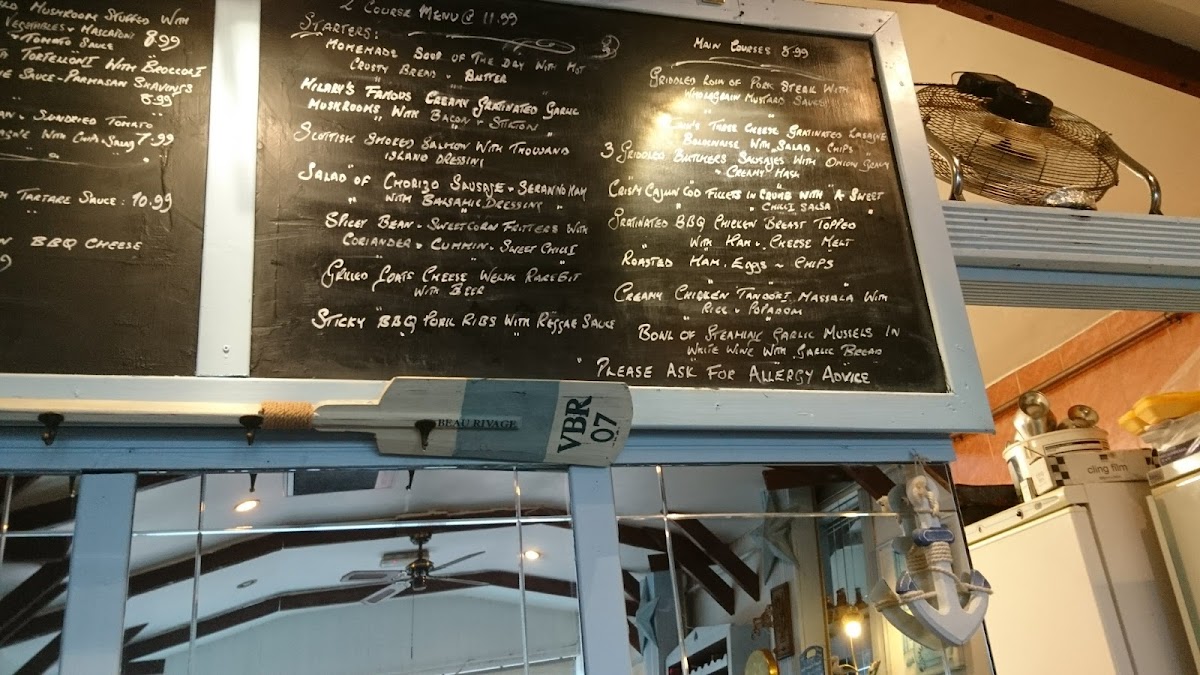 Mushroom Stuffed With
Vegetables & Mascaponi 8.99
& Tomato Sauce
Tortelloni With Broccoli
Sauce - Parmasan Shavings
8.99
Sundried Tomato
With Chips & Salad 7.99
Tartare Sauce: 10.99
BBQ Cheese
2 Course Menu @ 11.99
Starters:
Homemade Soup of The Day With Hot
Crusty Bread & Butter
Hilary's Famous Creamy Gratinated Garlic
Mushrooms With Bacon & Stilton
Scottish Smoked Salmon With Thousand
Island Dressing
Salad of Chorizo Sausage & Seranno Ham
With Balsamic Dressing
Spicey Bean & Sweetcorn Fritters With
Coriander & Cummin & Sweet Chilli
Grilled Goats Cheese Welsh Rarebit
With Beer
Sticky BBQ Pork Ribs With Reggae Sauce
Main Courses 8.99
Griddled Loin of Pork Steak With
Wholegrain Mustard Sauce
Three Cheese Gratinated Lasagne
Bolognaise With Salad & Chips
3 Griddled Butchers Sausages With Onion Gravy
& Creamy Mash
Crispy Cajun Cod Fillets in Crumb With A Sweet
Chilli Salsa
Gratinated BBQ Chicken Breast Topped
With Ham & Cheese Melt
Roasted Ham, Eggs & Chips
Creamy Chicken Tandori Massala With
Rice & Popadom
Bowl of Steaming Garlic Mussels In
White Wine With Garlic Bread
Please Ask For Allergy Advice
BEAU RIVAGE
VBR
07
cling film